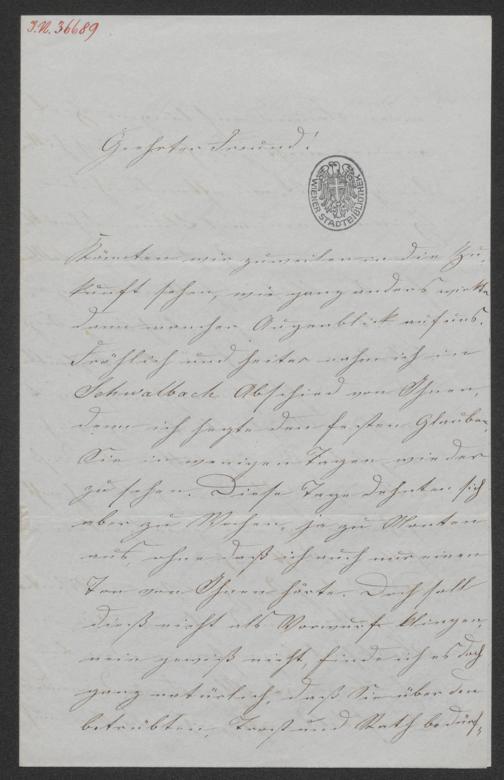 J.N. 36689
Geehrter Freund!
WIENER STADTBIBLIOTHEK
Könnten wir zuweilen in die Zu-
kunft sehen, wie ganz anders wirkte
dann mancher Augenblick auf uns.
Fröhlich und heiter nahm ich in
Schwalbach Abschied von Ihnen,
denn ich hegte den festen Glauben
Sie in wenigen Tagen wieder
zu sehen. Diese Tage dehnten sich
aber zu Wochen, ja zu Monten
aus, ohne daß ich auch nur einen
Ton von Ihnen hörte. Doch soll
dieß nicht als Vorwurf klingen,
nein gewiß nicht, finde ich es doch
ganz natürlich, daß Sie über den
betrübten, Trost und Rath bedürf-